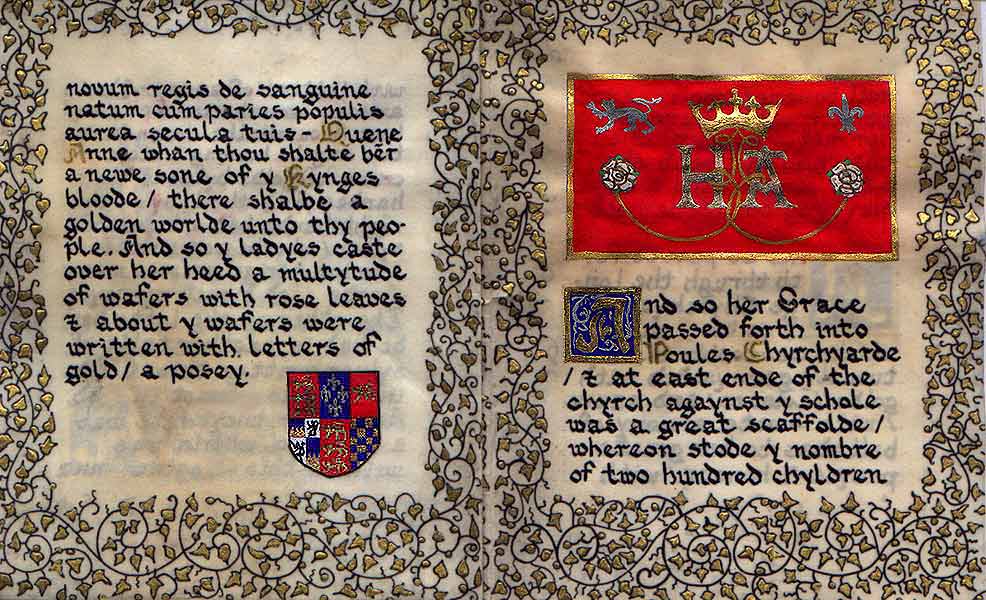 novum regis de sanguine
natum cum paries populis
aurea secula tuis - Quene
Anne whan thou shalte ber
a newe sone of y Kynges
bloode / there shalbe a
golden worlde unto thy peo-
ple. And so y ladyes caste
over her heed a multytude
of wafers with rose leaves
& about y wafers were
written with letters of
gold / a posey.
HA
And so her Grace
passed forth into
Poules Chyrchyarde
/ & at east ende of the
chyrch agaynst y schole
was a great scaffolde /
whereon stode y nombre
of two hundred chyldren